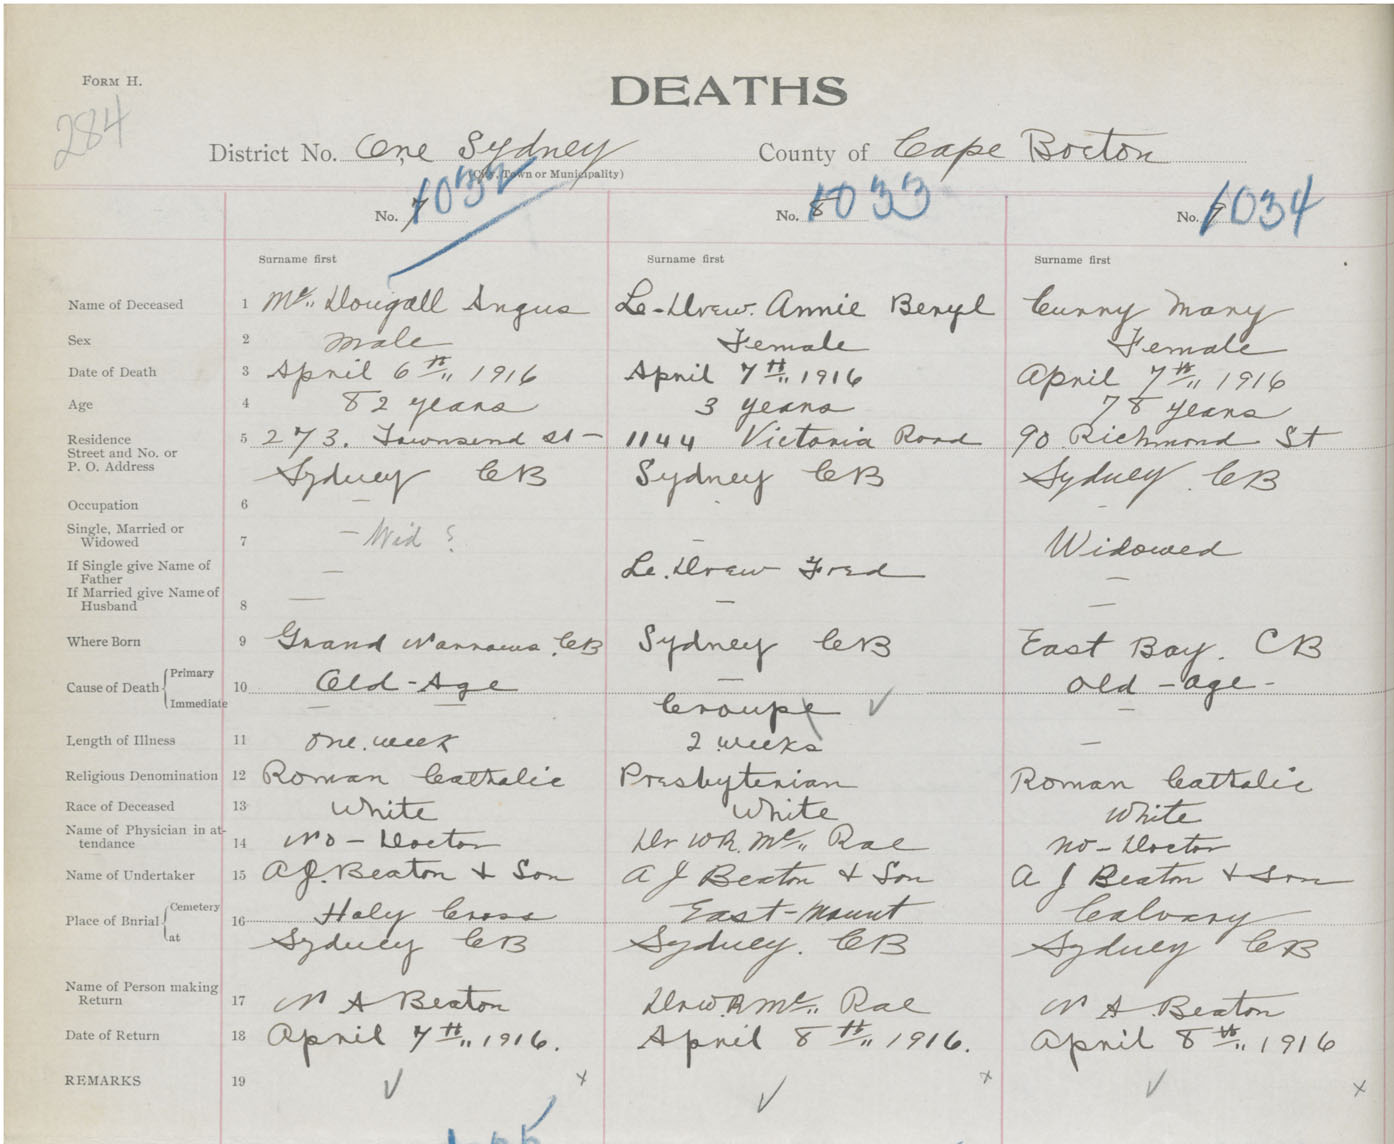 FORM H.
DEATHS
284
District No. One Sydney County of Cape Breton
(City, Town or Municipality)
No. 7 1032 No. 8 1033 No. 9 1034
Surname first Surname first Surname first
Name of Deceased 1 Mc Dougall Angus Le-Drew. Annie Beryl Curry Mary
Sex 2 Male Female Female
Date of Death 3 April 6th,, 1916 April 7th,, 1916 April 7th,, 1916
Age 4 82 years 3 years 78 years
Residence 5 273. Townsend St- 1144 Victoria Road 90 Richmond St
Street and No. or
P. O. Address Sydney CB Sydney CB Sydney. CB
Occupation 6 —
Single, Married or
Widowed 7 — Wid ? — Widowed
If Single give Name of
Father — Le. Drew Fred —
If Married give Name of
Husband 8 — — —
Where Born 9 Grand Narrows. CB Sydney CB East Bay. CB
Cause of Death { Primary 10 Old-Age — old-age-
Immediate — Croupe —
Length of Illness 11 one. week 2 weeks —
Religious Denomination 12 Roman Catholic Presbyterian Roman Catholic
Race of Deceased 13 White White White
Name of Physician in at-
tendance 14 No-Doctor Dr W R. Mc,, Rae no-Doctor
Name of Undertaker 15 A J. Beaton + Son A J Beaton + Son A J Beaton + Son
Place of Burial { Cemetery 16 Holy Cross East-Mount Calvary
at Sydney CB Sydney. CB Sydney CB
Name of Person making
Return 17 N A Beaton Dr W. R Mc,, Rae N A. Beaton
Date of Return 18 April 7th,, 1916. April 8th,, 1916. April 8th,, 1916
REMARKS 19 ✓ x ✓ x ✓ x